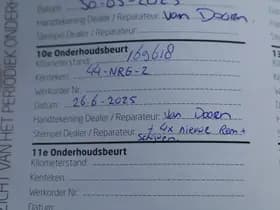 Datum: 30-05-2023
Handtekening Dealer / Reparateur: Van Dooren
Stempel Dealer / Reparateur:
10e Onderhoudsbeurt
Kilometerstand: 169618
Kenteken: 44-NRG-2
Werkorder Nr:
Datum: 26.6-2025
Handtekening Dealer / Reparateur: Van Dooren
Stempel Dealer / Reparateur: + 4x nieuwe Rem +
Schijven
11e Onderhoudsbeurt
Kilometerstand:
Kenteken:
Werkorder Nr:
Datum:
ZICHT VAN HET PERIODIEK ONDERH